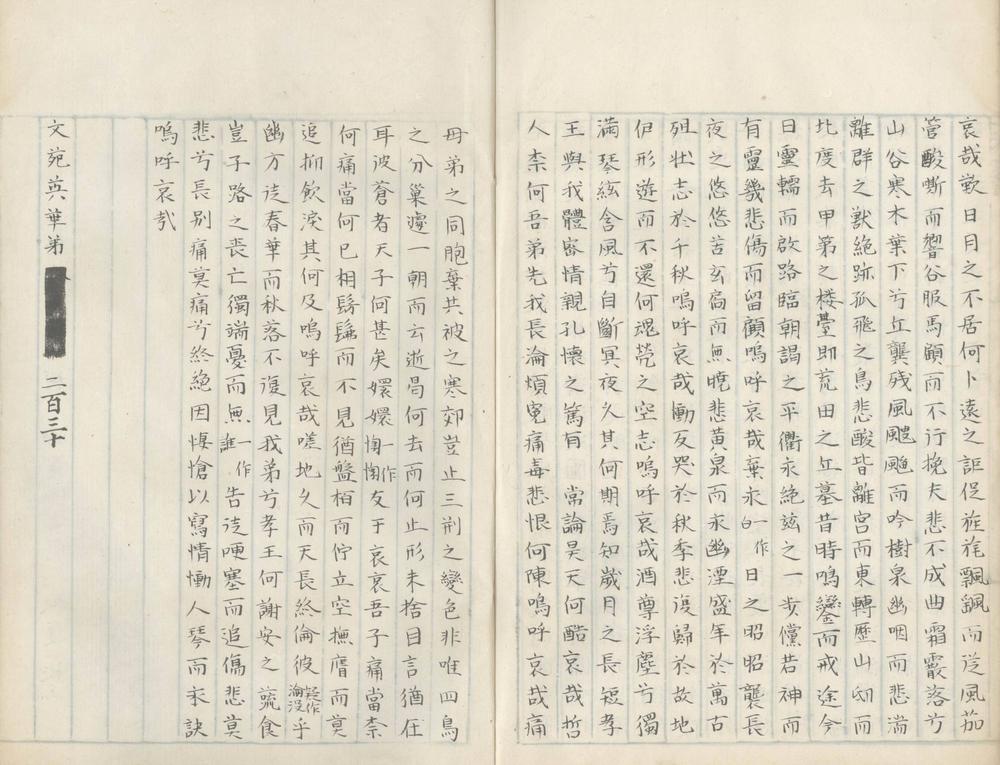 哀哉歎日月之不居何卜遠之詎促旌旄飄飄而從風茄
管酸嘶而響谷服馬顧而不行挽夫悲不成曲霜霰落兮
山谷寒木葉下兮丘隴殘風颼颼而吟樹泉幽咽而悲湍
離群之獸絶跡孤飛之鳥悲酸皆離宮而東轉歷山邙而
北度去甲第之楼臺即荒田之丘墓昔時鳴鑾而戒途今
日靈轜而啟路臨朝謁之平衢永絶玆之一步儻若神而
有靈幾悲傷而留顧嗚呼哀哉棄永一作白日之昭昭襲長
夜之悠悠苦玄扃而無曉悲黃泉而永幽湮盛年於萬古
殂壯志於千秋嗚呼哀哉慟友哭於秋季悲復歸於故地
伊形遊而不還何魂煢之空志嗚呼哀哉酒尊浮塵兮獨
滿琴絃含風兮自斷冥夜久其何期焉知歲月之長短孝
王與我體密情親孔懷之篤有常論昊天何酷哀哉哲
人柰何吾弟先我長淪煩寃痛毒悲恨何陳嗚呼哀哉痛
母弟之同胞棄共被之寒郊豈止三荆之變色非唯四鳥
之分巢嬺一朝而云逝曷何去而何止形未捨目言猶在
耳彼蒼者天子何甚矣嬛嬛一作惸惸友于哀哀吾子痛當柰
何痛當何已相髣髴而不見猶盤桓而佇立空撫膺而莫
追抑飲淚其何及嗚呼哀哉嗟地久而天長終倫彼疑作淪没乎
幽方徒春華而秋落不復見我弟兮孝王何謝安之蔬食
豈子路之喪亡獨湍憂而無一作誰告徒哽塞而追傷悲莫
悲兮長别痛莫痛兮終絶因悽愴以寫情慟人琴而永訣
嗚呼哀哉
文苑英華第
二百三十